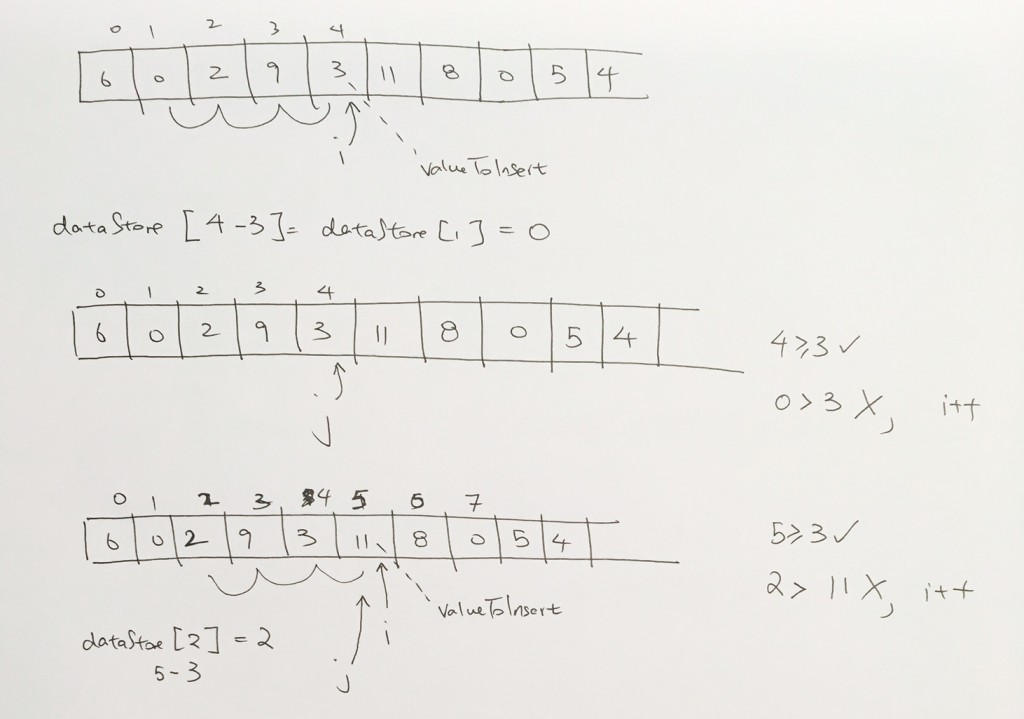 0 1 2 3 4
6 0 2 9 3 11 8 0 5 4
i
valueToInsert
dataStore [4-3]= dataStore [1] = 0
0 1 2 3 4
6 0 2 9 3 11 8 0 5 4
j
4⩾3 ✓
0>3 X, i++
0 1 2 3 4 5 6 7
6 0 2 9 3 11 8 0 5 4
i
valueToInsert
j
dataStoe [2] = 2
5-3
5⩾3 ✓
2> 11 X, i++